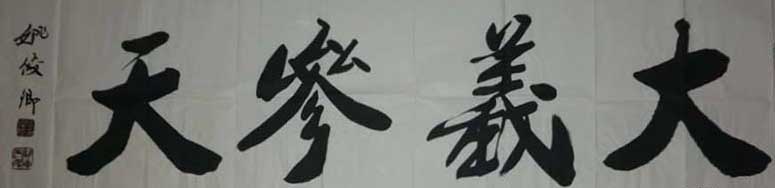 大義參天
姚俊卿